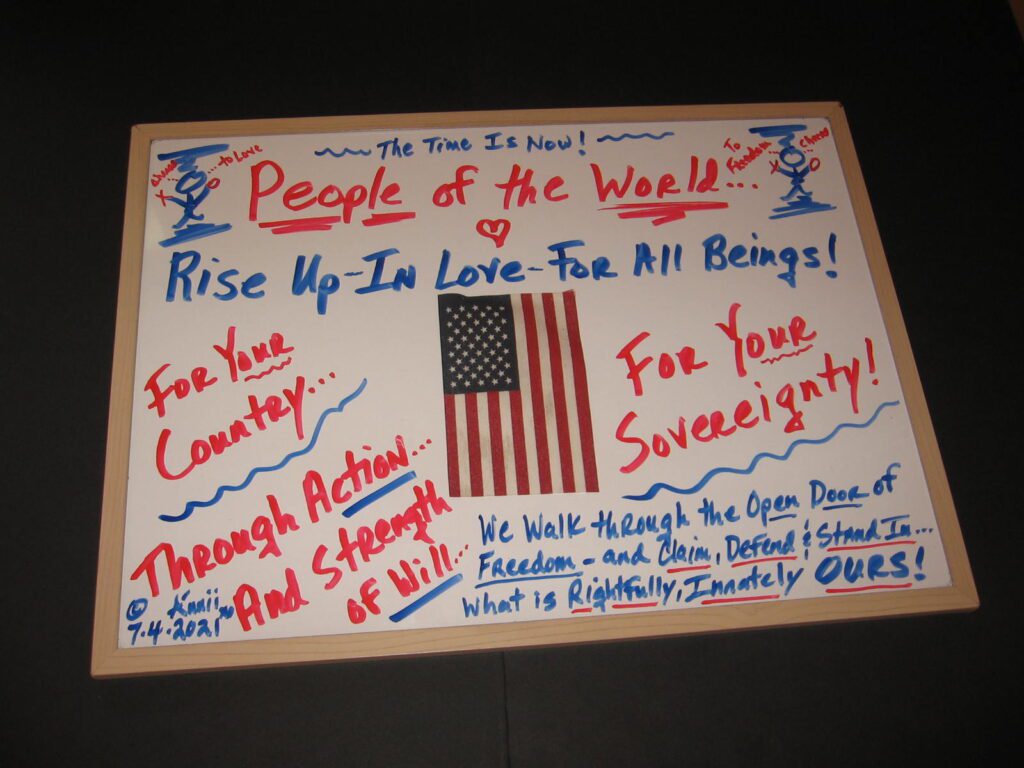 The Time Is Now!
Chaos X ... to Love O
People of the World...
To Freedom O ... Chaos X
Rise Up-In Love-For All Beings!
For Your
Country...
For Your
Sovereignty!
Through Action...
And Strength
of Will...
We Walk through the Open Door of
Freedom - and Claim, Defend & Stand In...
what is Rightfully, Innately OURS!
© Annii ™
7.4.2021